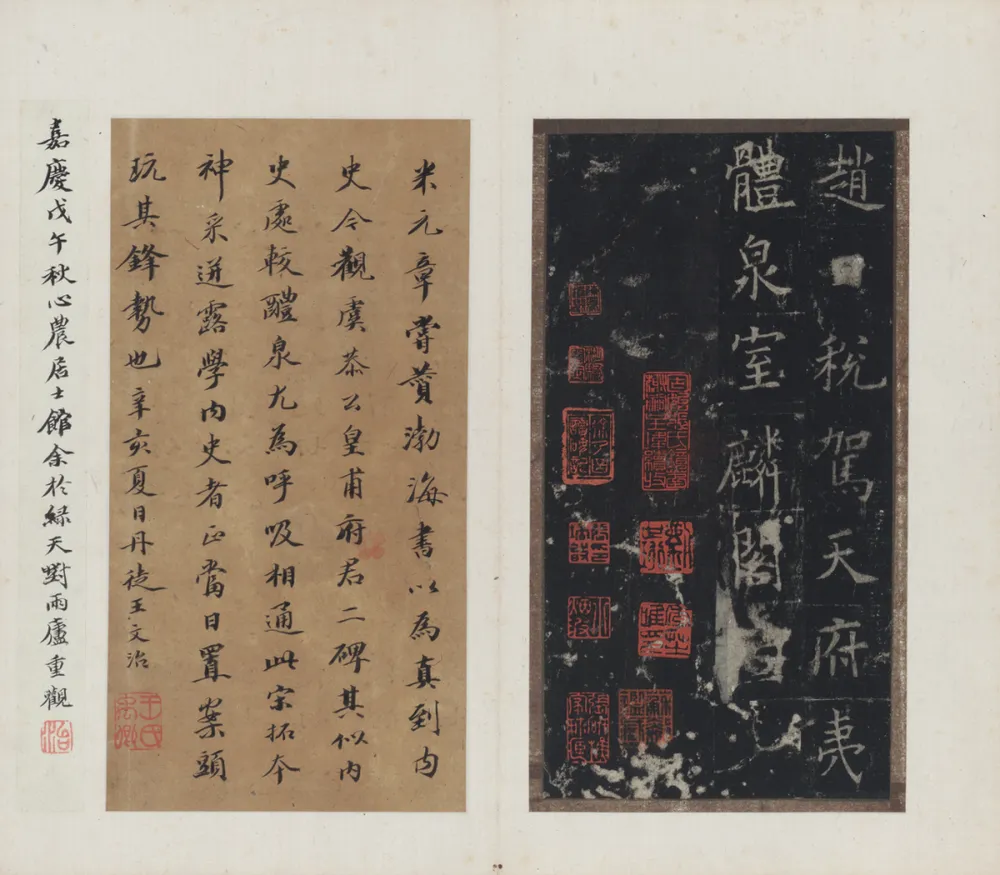 趙 稅駕天府夷
體泉室麟閣
米元章嘗贊渤海書以為真到內
史今觀虞恭公皇甫府君二碑其似內
史處較醴泉尤為呼吸相通此宋拓本
神采迸露學內史者正當日置案頭
玩其鋒勢也辛亥夏日丹徒王文治
王氏禹卿
嘉慶戊午秋心農居士館余於綠天對雨廬重觀